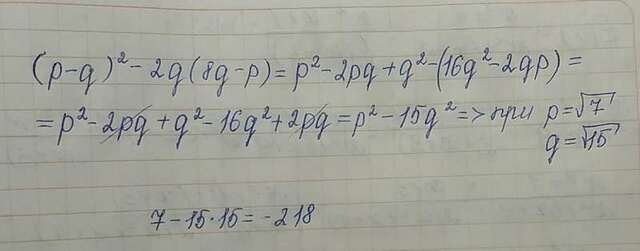 (p-q)² - 2q(8q-p) = p² - 2pq + q² - (16q² - 2qp) =
= p² - 2pq + q² - 16q² + 2pq = p² - 15q² => при p = √7
q = √15
7 - 15·15 = -218